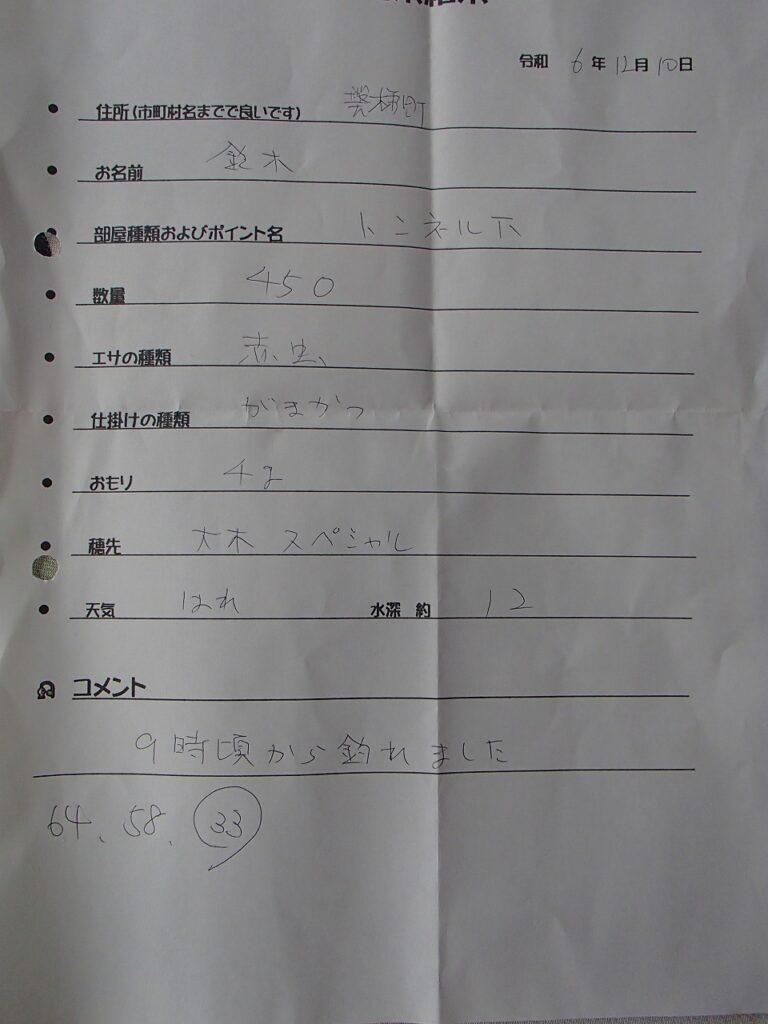 令和 6年12月10日
住所(市町村名までで良いです)
お名前 鈴木
部屋種類およびポイント名 トンネル下
数量 450
エサの種類 赤虫
仕掛けの種類 がまかつ
おもり 4g
穂先 大木スペシャル
天気 はれ 水深 約 12
コメント
9時頃から釣れました
64、58、33